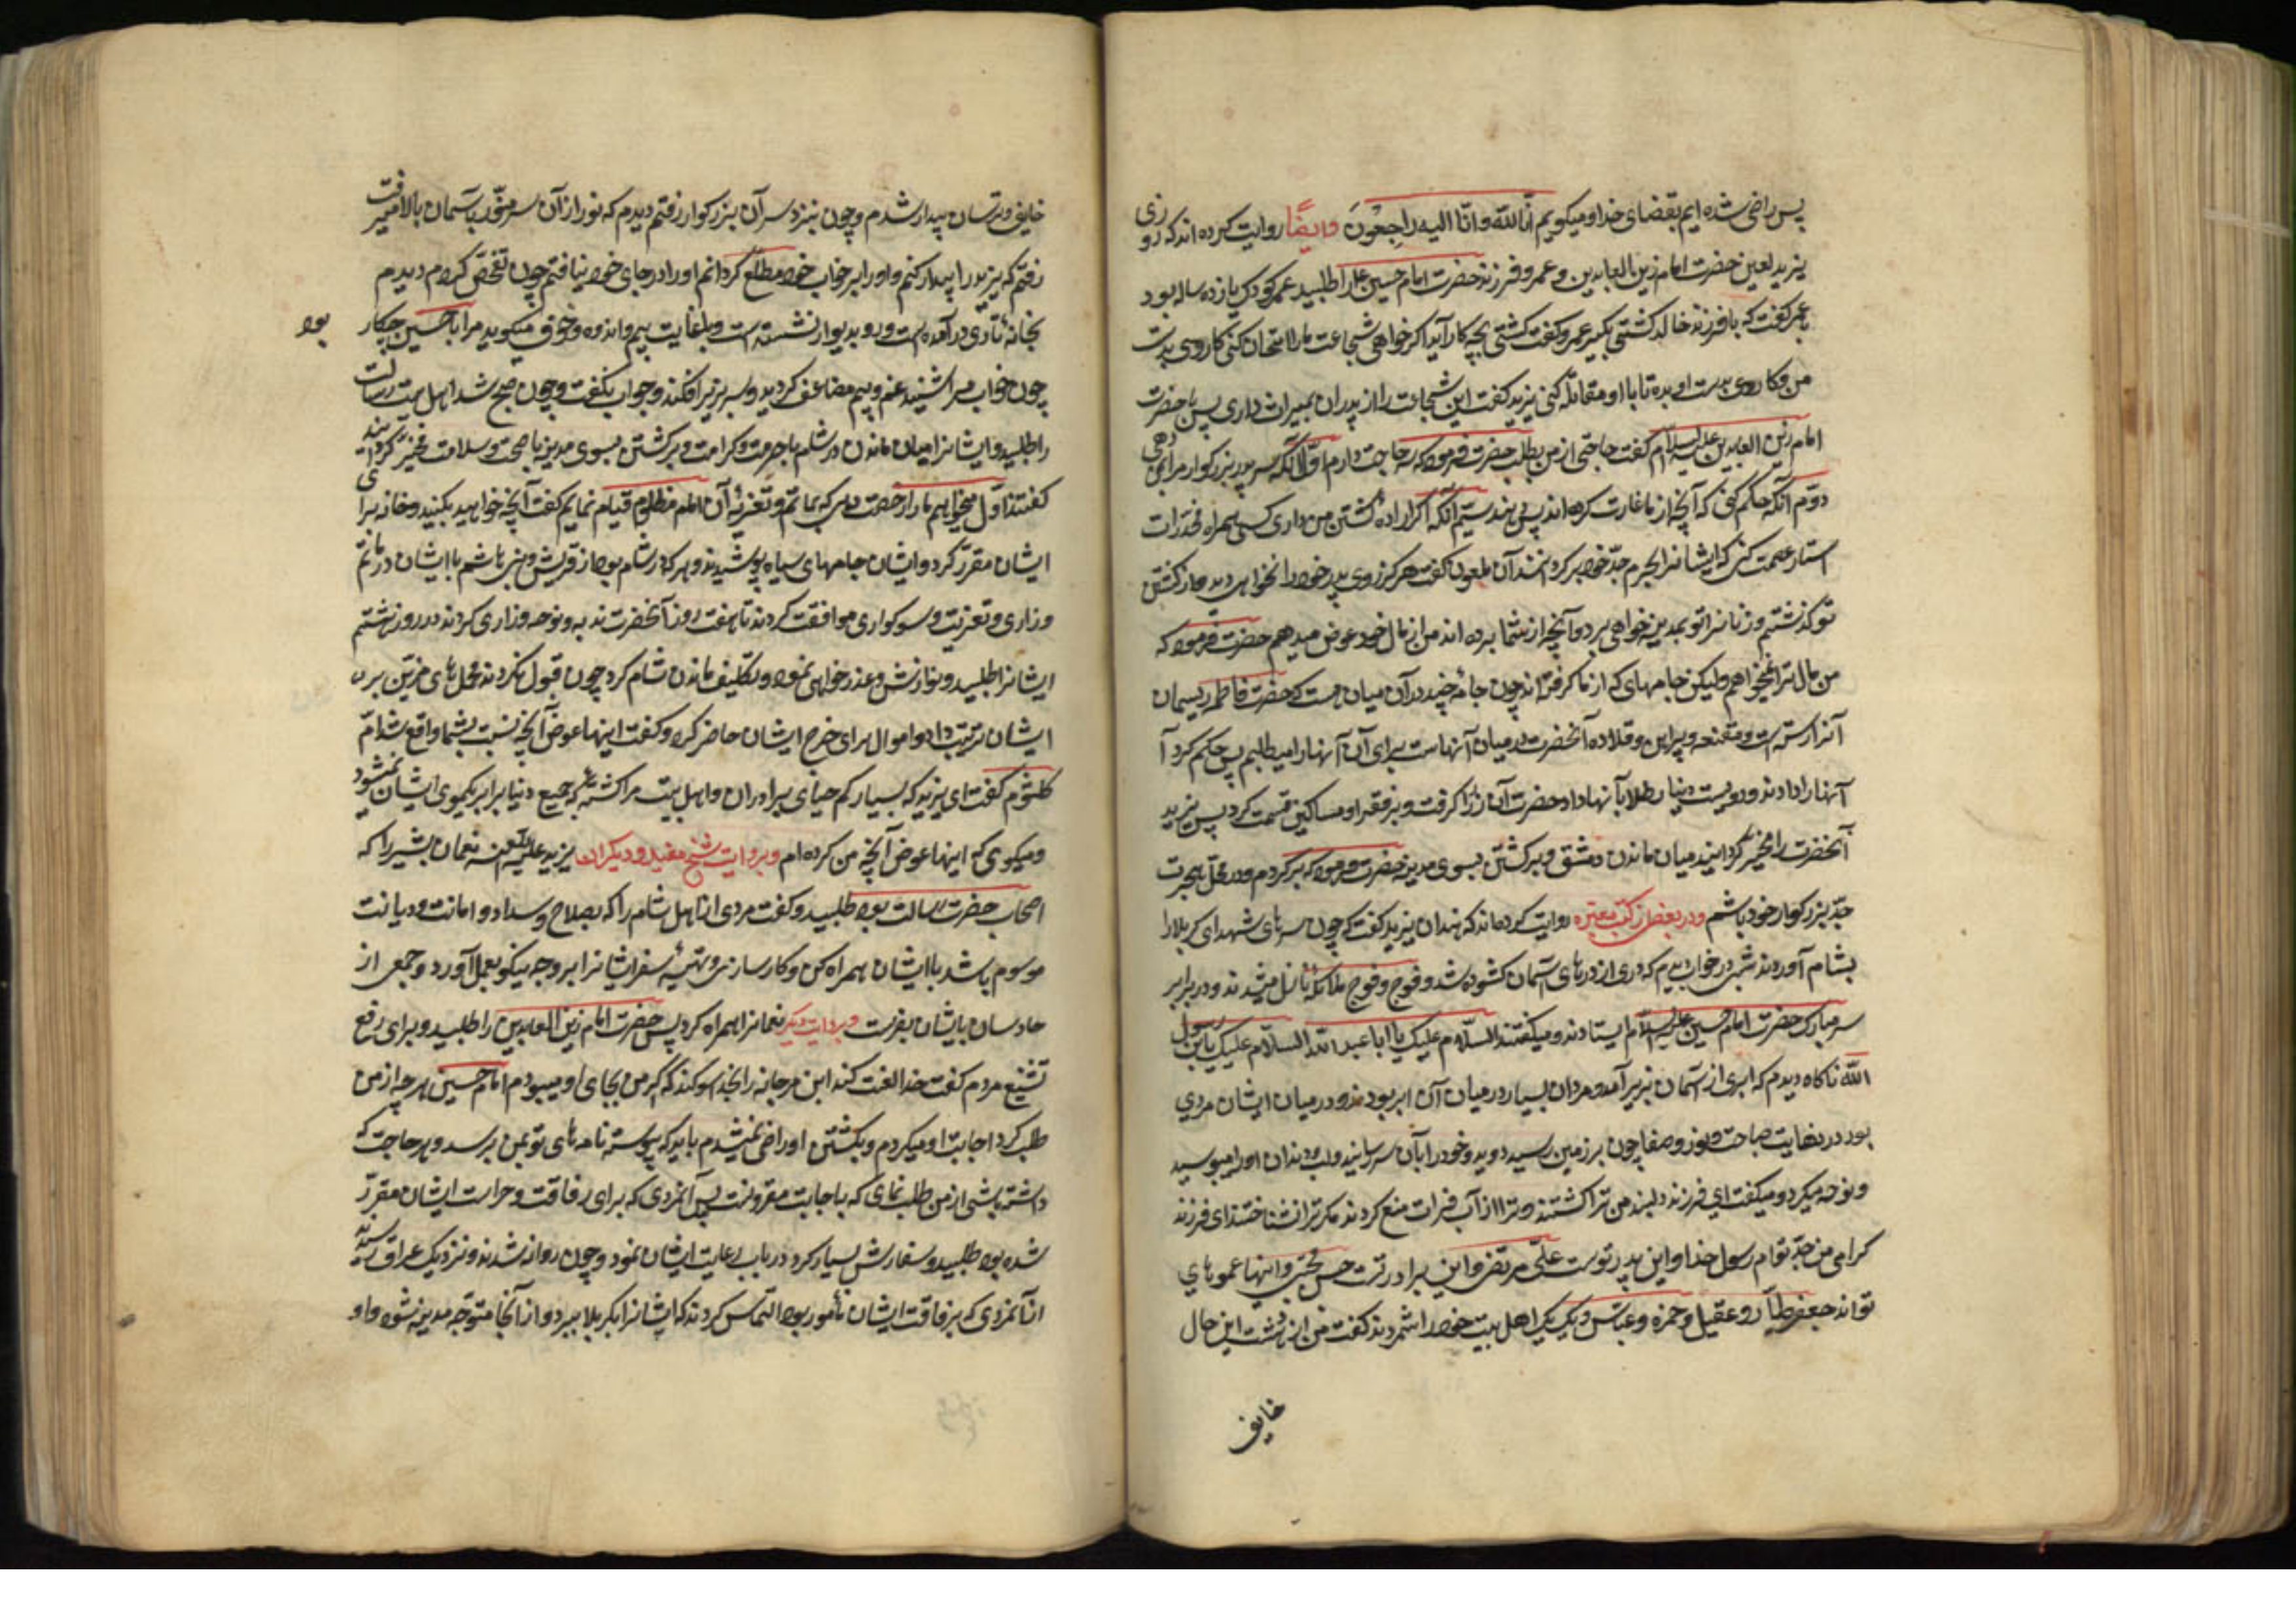 پس راضی شده ایم بقضای خدا و میگویم انّا للّه و انّا الیه راجعون و ایضًا روایت کرده اند که روزی
یزید لعین حضرت امام زین العابدین و عمرو فرزند حضرت امام حسین را طلبید عمر کودک یازده ساله بود
با عمر گفت که با فرزندم خالد کشتی بگیر عمرو گفت کشتی بچه کار آید اگر خواهی شجاعت ما را امتحان کنی کاردی بدست
من و کاردی بدست او بده تا با او مقاتله کنی یزید گفت این شجاعت را از پدران بمیراث داری پس با حضرت
امام زین العابدین علیه السلام گفت حاجتی از من بطلب حضرت فرمود که سه حاجت دارم اوّل آنکه سر پدر بزرگوار مرا بمن دهی
دوّم آنکه حکم کنی که آنچه از ما غارت کرده اند پس بدهند سیّم آنکه اگر اراده کشتن من داری کسی همراه مخدّرات
استار عصمت کنی که ایشانرا بحرم جدّ خود برگردانند آن ملعون گفت هرگز روی پدر خود را نخواهی دید و از کشتن
تو گذشتیم و زنانرا تو بمدینه خواهی برد و آنچه از شما برده اند من از مال خود عوض میدهم حضرت فرمود که
من مال ترا نمیخواهم ولیکن جامهای که از ما گرفته اند چون جامهٔ چند در آن میان هست که حضرت فاطمه ریسمان
آنرا رشته است و مقنعه و پیراهن و قلاده آنحضرت در میان آنهاست برای آن آنهارا میطلبم پس حکم کرد آ
آنهارا دادند و دویست دینار طلا با آنها داد حضرت آن زر را گرفت و بر فقرا و مساکین قسمت کرد پس یزید
آنحضرت را مخیّر گردانید میان ماندن دمشق و برگشتن بسوی مدینه حضرت فرمود که برگردم و در محلّ هجرت
جدّ بزرگوار خود باشم و در بعضی از کتب معتبره روایت کرده اند که هند زن یزید گفت که چون سرهای شهدای کربلا را
بشام آوردند شبی در خواب دیدم که دری از درهای آسمان گشوده شد و فوج و فوج ملائکه نازل میشدند و در برابر
سر مبارک حضرت امام حسین علیه السلام ایستادند و میگفتند السّلام علیک یا ابا عبد اللّه السّلام علیک یابن رسول
اللّه ناگاه دیدم که ابری از آسمان بزیر آمد و مردان بسیار در میان آن ابر بودند و در میان ایشان مردی
بود در نهایت صباحت و نور و صفا چون بر زمین رسید دوید و خود را بآن سر رسانید و لب و دندان او را میبوسید
و نوحه میکرد و میگفت ای فرزند دلبند من ترا کشتند و ترا از آب فرات منع کردند مگر ترا نشناختند ای فرزند
گرامی من جدّ توام رسول خدا و این پدر توست علی مرتضی و این برادر تست حسن مجتبی و اینها عموهای
تو اند جعفر طیّار و عقیل و حمزه و عباس و یک یک اهل بیت خود را شمردند گفت من از دهشت این حال
خایف
خایف و ترسان بیدار شدم و چون بنزد سر آن بزرگوار رفتم دیدم که نور از آن سر منوّر بآسمان بالا میرفت
رفتم که یزید را بیدار کنم و او را بر خواب خود مطلع گردانم او را در جای خود نیافتم چون تفحّص کردم دیدم
بخانهٔ تاری در آمده است و رو بدیوار نشسته است و بغایت بیم و اندوه و خوف میگوید مرا با حسین چکار بود
چون خواب مرا شنید غم و بیم مضاعف گردید و سر بزیر افکند و جواب نگفت و چون صبح شد اهل بیت رسالت
را طلبید و ایشانرا میان ماندن در شام با حرمت و کرامت و برگشتن بسوی مدینه با صحت و سلامت مخیّر گردانید
گفتند اوّل میخواهیم ما را رخصت دهی که بماتم و تعزیهٔ آن امام مظلوم قیام نمایم گفت آنچه خواهید بکنید و خانه برای
ایشان مقرّر کرد و ایشان جامهای سیاه پوشیدند و هر که در شام بود از قریش و بنی هاشم با ایشان در ماتم
و زاری و تعزیت و سوکواری موافقت کردند تا هفت روز آنحضرت ندبه و نوحه و زاری کردند در روز هشتم
ایشانرا طلبید و نوازش و عذر خواهی نمود و تکلیف ماندن شام کرد چون قبول نکردند محمل های مزیّن برای
ایشان ترتیب داد و اموال برای خرج ایشان حاضر کرد و گفت اینها عوض آنچه نسبت بشما واقع شد امّ
کلثوم گفت ای یزید که بسیار کم حیای برادران و اهل بیت مرا کشتهٔ که جمیع دنیا برابر یکموی ایشان نمیشود
و میگوی که اینها عوض آنچه من کرده ام و بروایت شیخ مفید و دیگران یزید علیه اللعنه نعمان بشیر را که
اصحاب حضرت رسالت بود طلبید و گفت مردی از اهل شام را که بصلاح و سداد و امانت و دیانت
موسوم باشد با ایشان همراه کن و کارسازی و تهیهٔ سفر ایشانرا بر وجه نیکو بعمل آورد و جمعی از
حارسان بایشان بفرست و بروایت دیگر نعمانرا همراه کرد پس حضرت امام زین العابدین را طلبید و برای رفع
تشنیع مردم گفت خدا لعنت کند ابن مرجانه را بخدا سوگند که اگر من بجای او میبودم امام حسین هر چه از من
طلب کرد اجابت او میکردم و بکشتن او راضی نمیشدم باید که پیوسته نامه های تو بمن برسد و هر حاجت که
داشته باشی از من طلب نمای که باجابت مقرونست پس آنمردی که برای رفاقت و حراست ایشان مقرّر
شده بود طلبید و سفارش بسیار کرد در باب رعایت ایشان نمود و چون روانه شدند و نزدیک عراق رسیدند
از آنمردی که برفاقت ایشان مأمور بود التماس کردند که ایشانرا بکربلا ببرد و از آنجا متوجّه مدینه شود و او